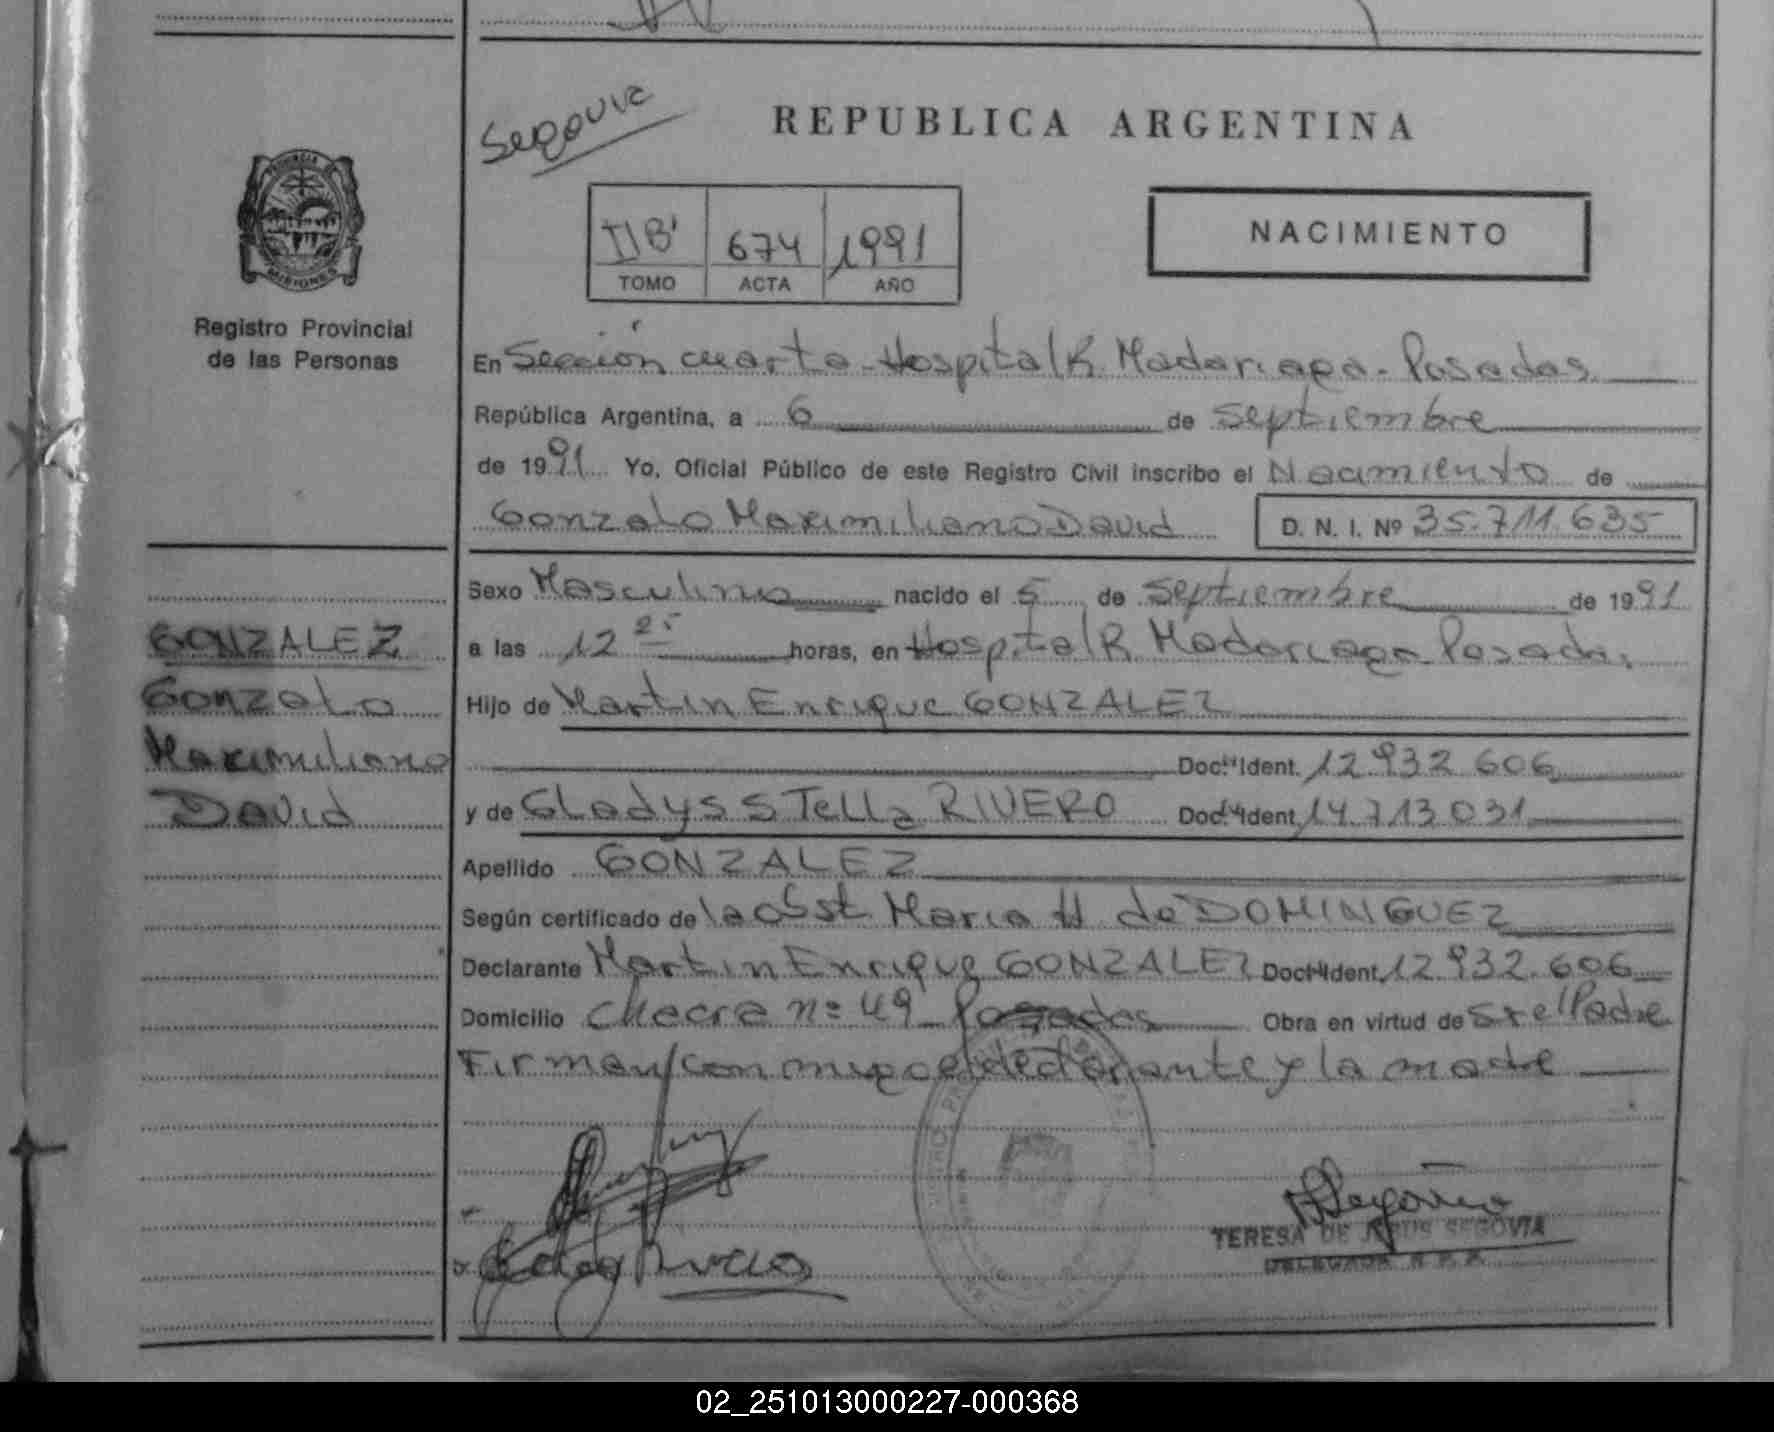 Segovia
REPUBLICA ARGENTINA
PROVINCIA DE
MISIONES
Registro Provincial
de las Personas
II B' 674 1991
TOMO ACTA AÑO
NACIMIENTO
En Sección cuarta - Hospital R. Madariaga - Posadas
República Argentina, a 6 de Septiembre
de 1991 Yo, Oficial Público de este Registro Civil inscribo el Nacimiento de
Gonzalo Maximiliano David D. N. I. Nº 35.711.635
Sexo Masculino nacido el 5 de Septiembre de 1991
a las 12 25 horas, en Hospital R. Madariaga Posadas
Hijo de Martin Enrique GONZALEZ
Doc. Ident. 12.932.606
y de GLadys STella RIVERO Doc. Ident. 14.713.031
Apellido GONZALEZ
Según certificado de la obst. Maria H de DOMINGUEZ
Declarante Martin Enrique GONZALEZ Doc. Ident. 12.932.606
Domicilio Chacra nº 49 Posadas Obra en virtud de ser el Padre
Firman conmigo el declarante y la madre
GONZALEZ
Gonzalo
Maximiliano
David
TERESA DE JESUS SEGOVIA
DELEGADA R. P. P.
02_251013000227-000368